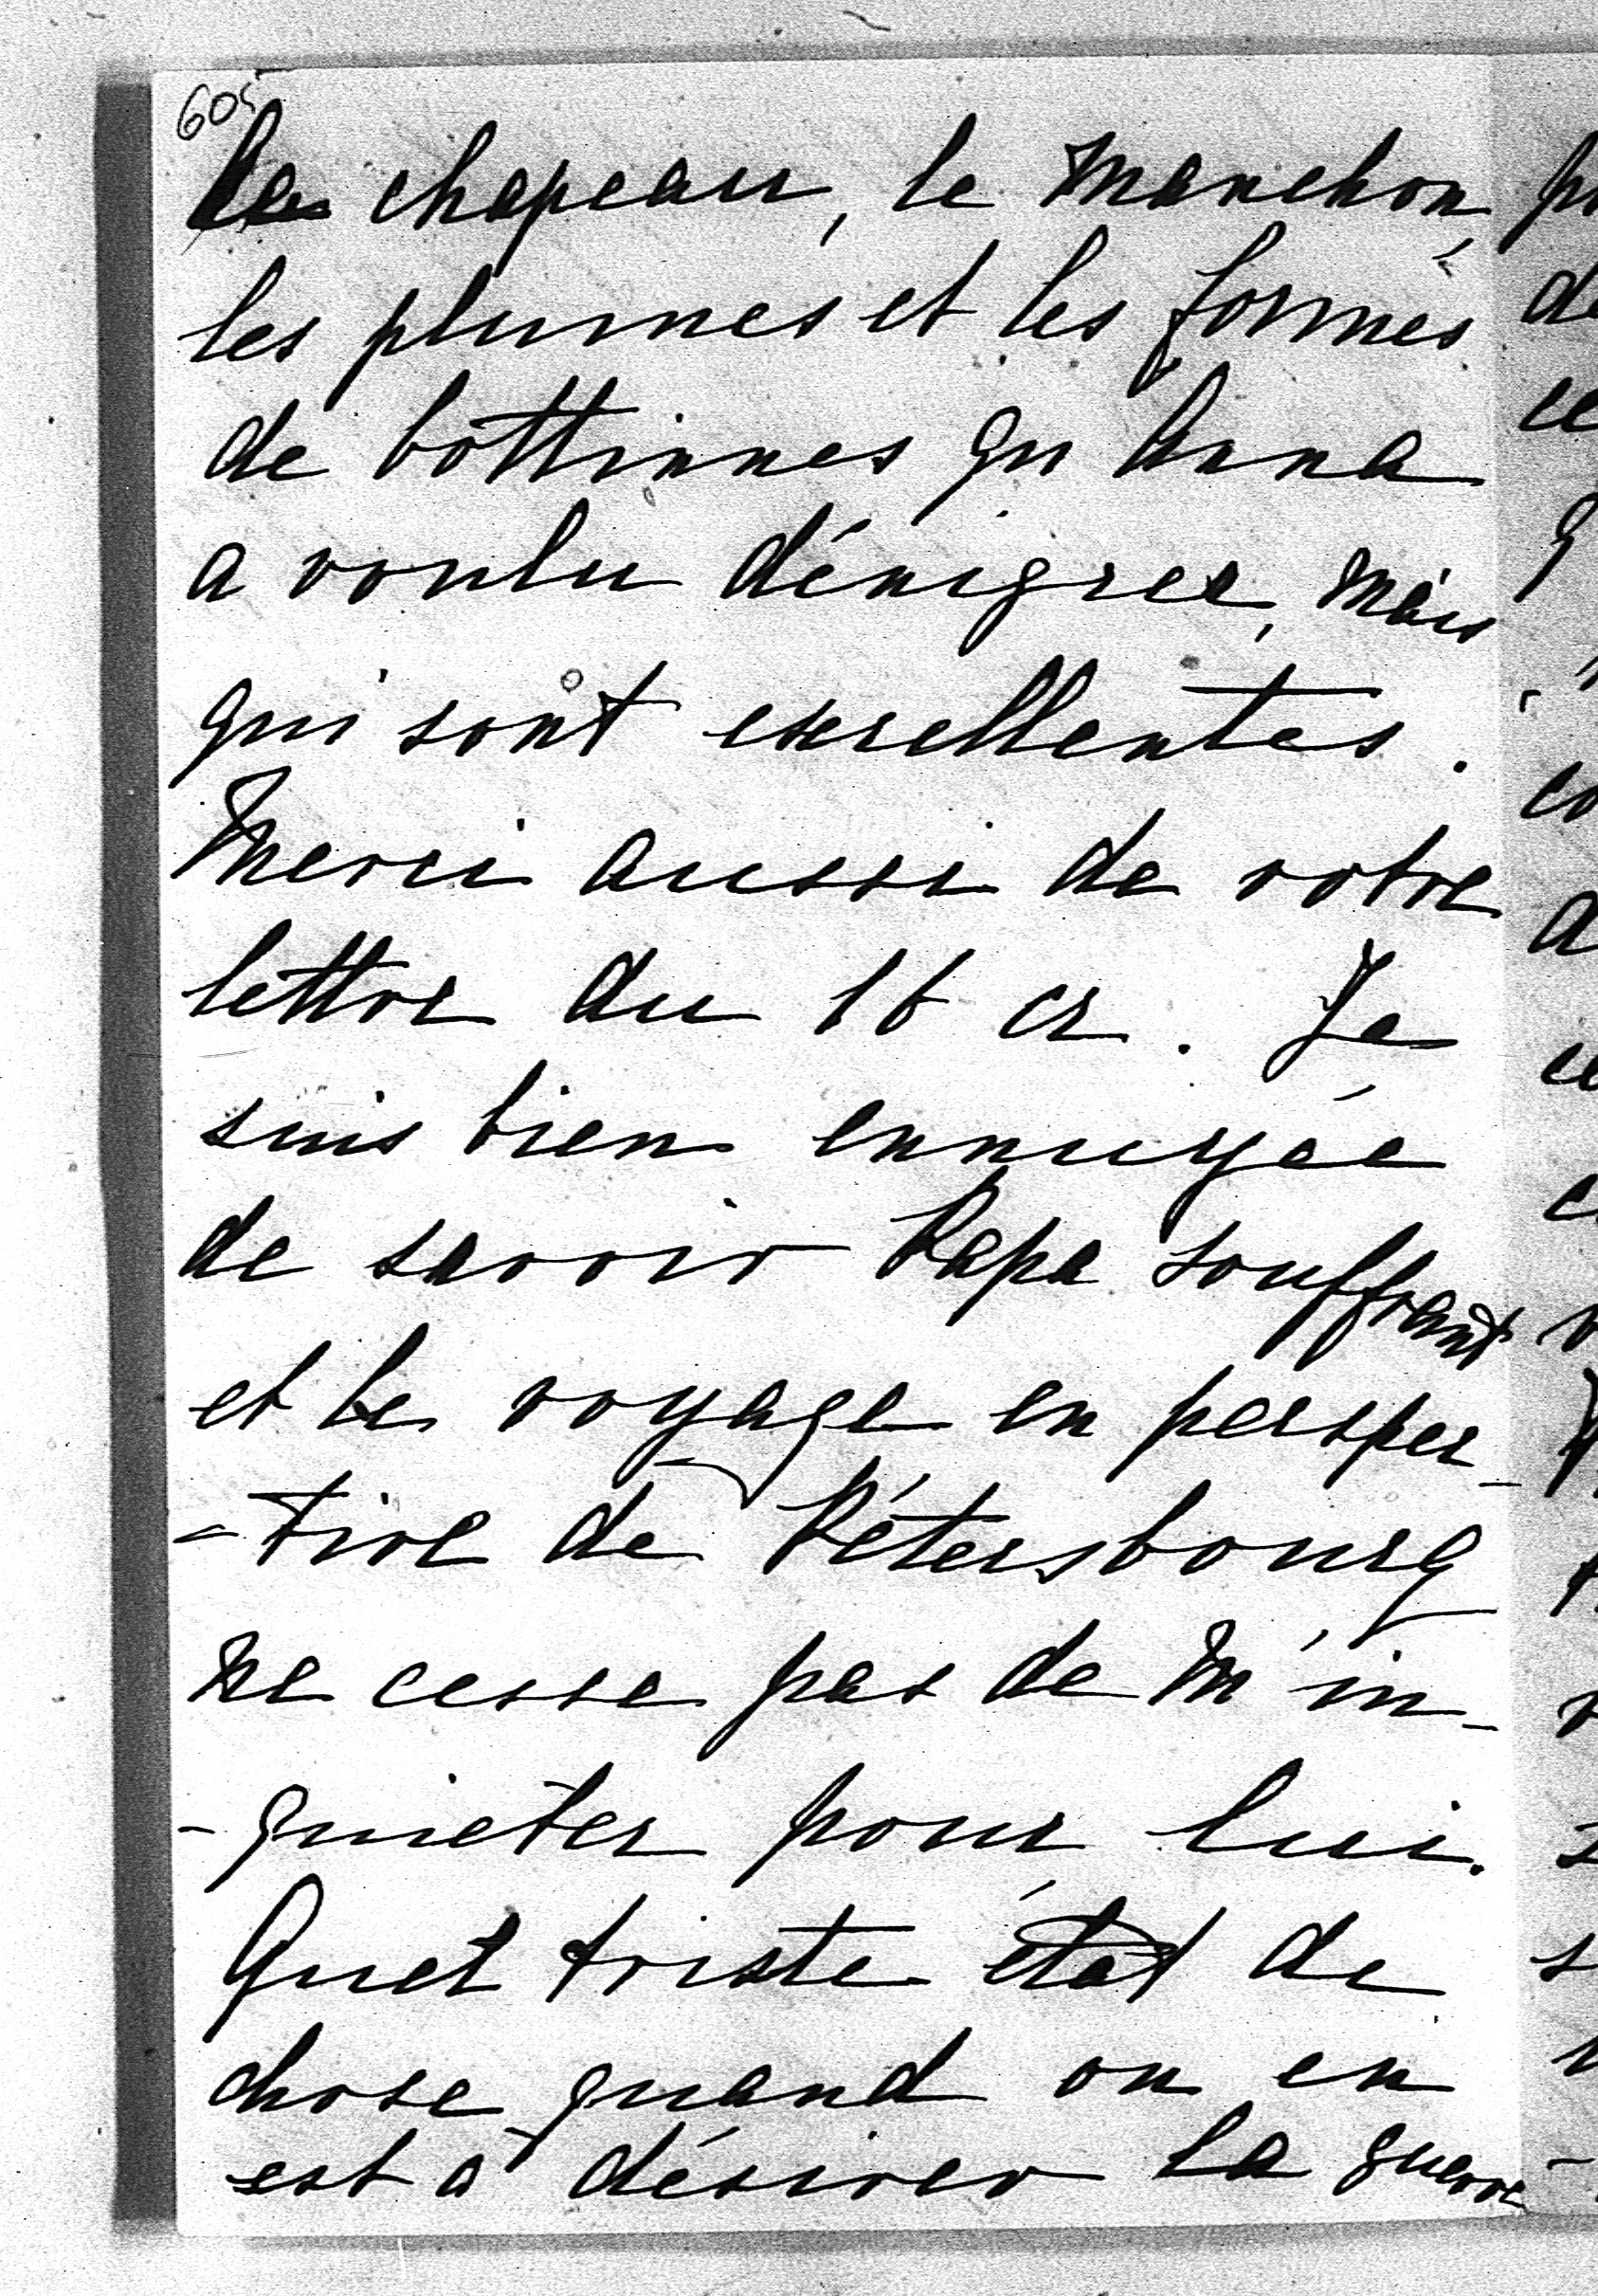 605
le chapeau, le manchon,
les plumes et les formes
de bottinnes qu'Anna
a voulu dénigrer, mais
qui sont excellentes.
Merci aussi de votre
lettre du 16 cr. Je
suis bien ennuyée
de savoir Papa souffrant
et le voyage en perspec-
-tive de Pétersbourg
ne cesse pas de m'in-
-quieter pour lui.
Quel triste état de
chose quand on en
est à désirer la guerre